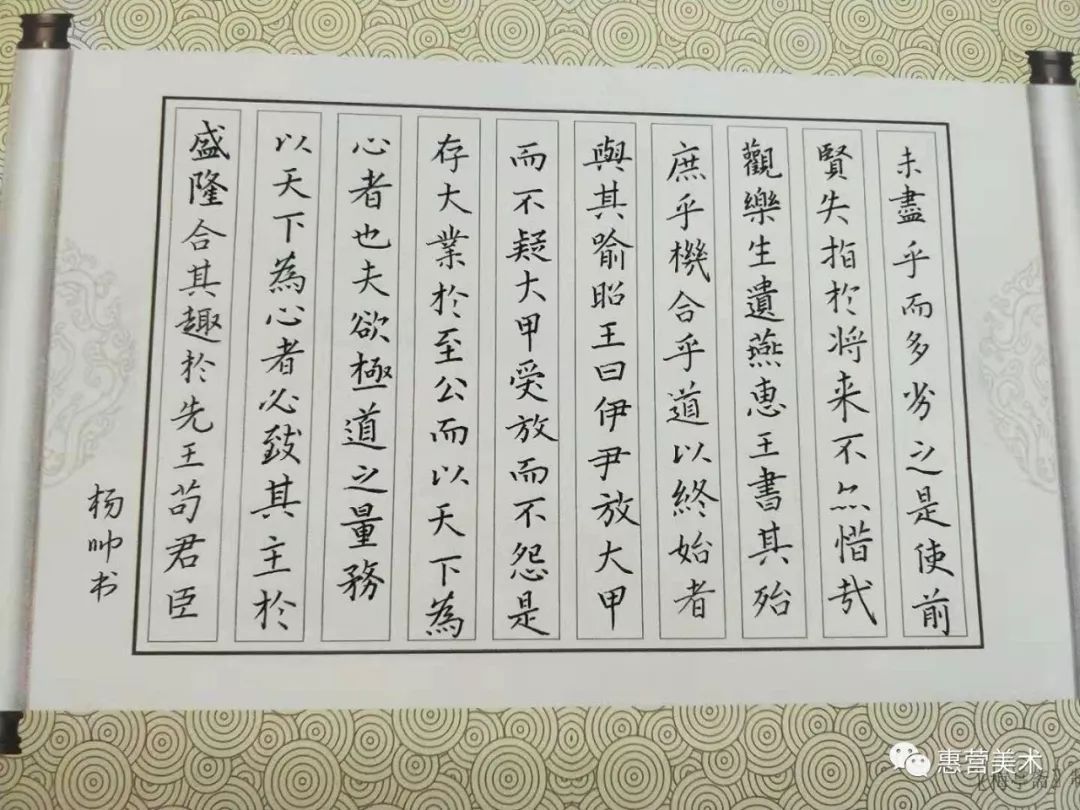 未盡乎而多劣之是使前
賢失指於将来不亦惜哉
觀樂生遺燕惠王書其殆
庶乎機合乎道以終始者
與其喻昭王曰伊尹放大甲
而不疑大甲受放而不怨是
存大業於至公而以天下為
心者也夫欲極道之量務
以天下為心者必致其主於
盛隆合其趣於先王苟君臣
杨帅书
惠营美术